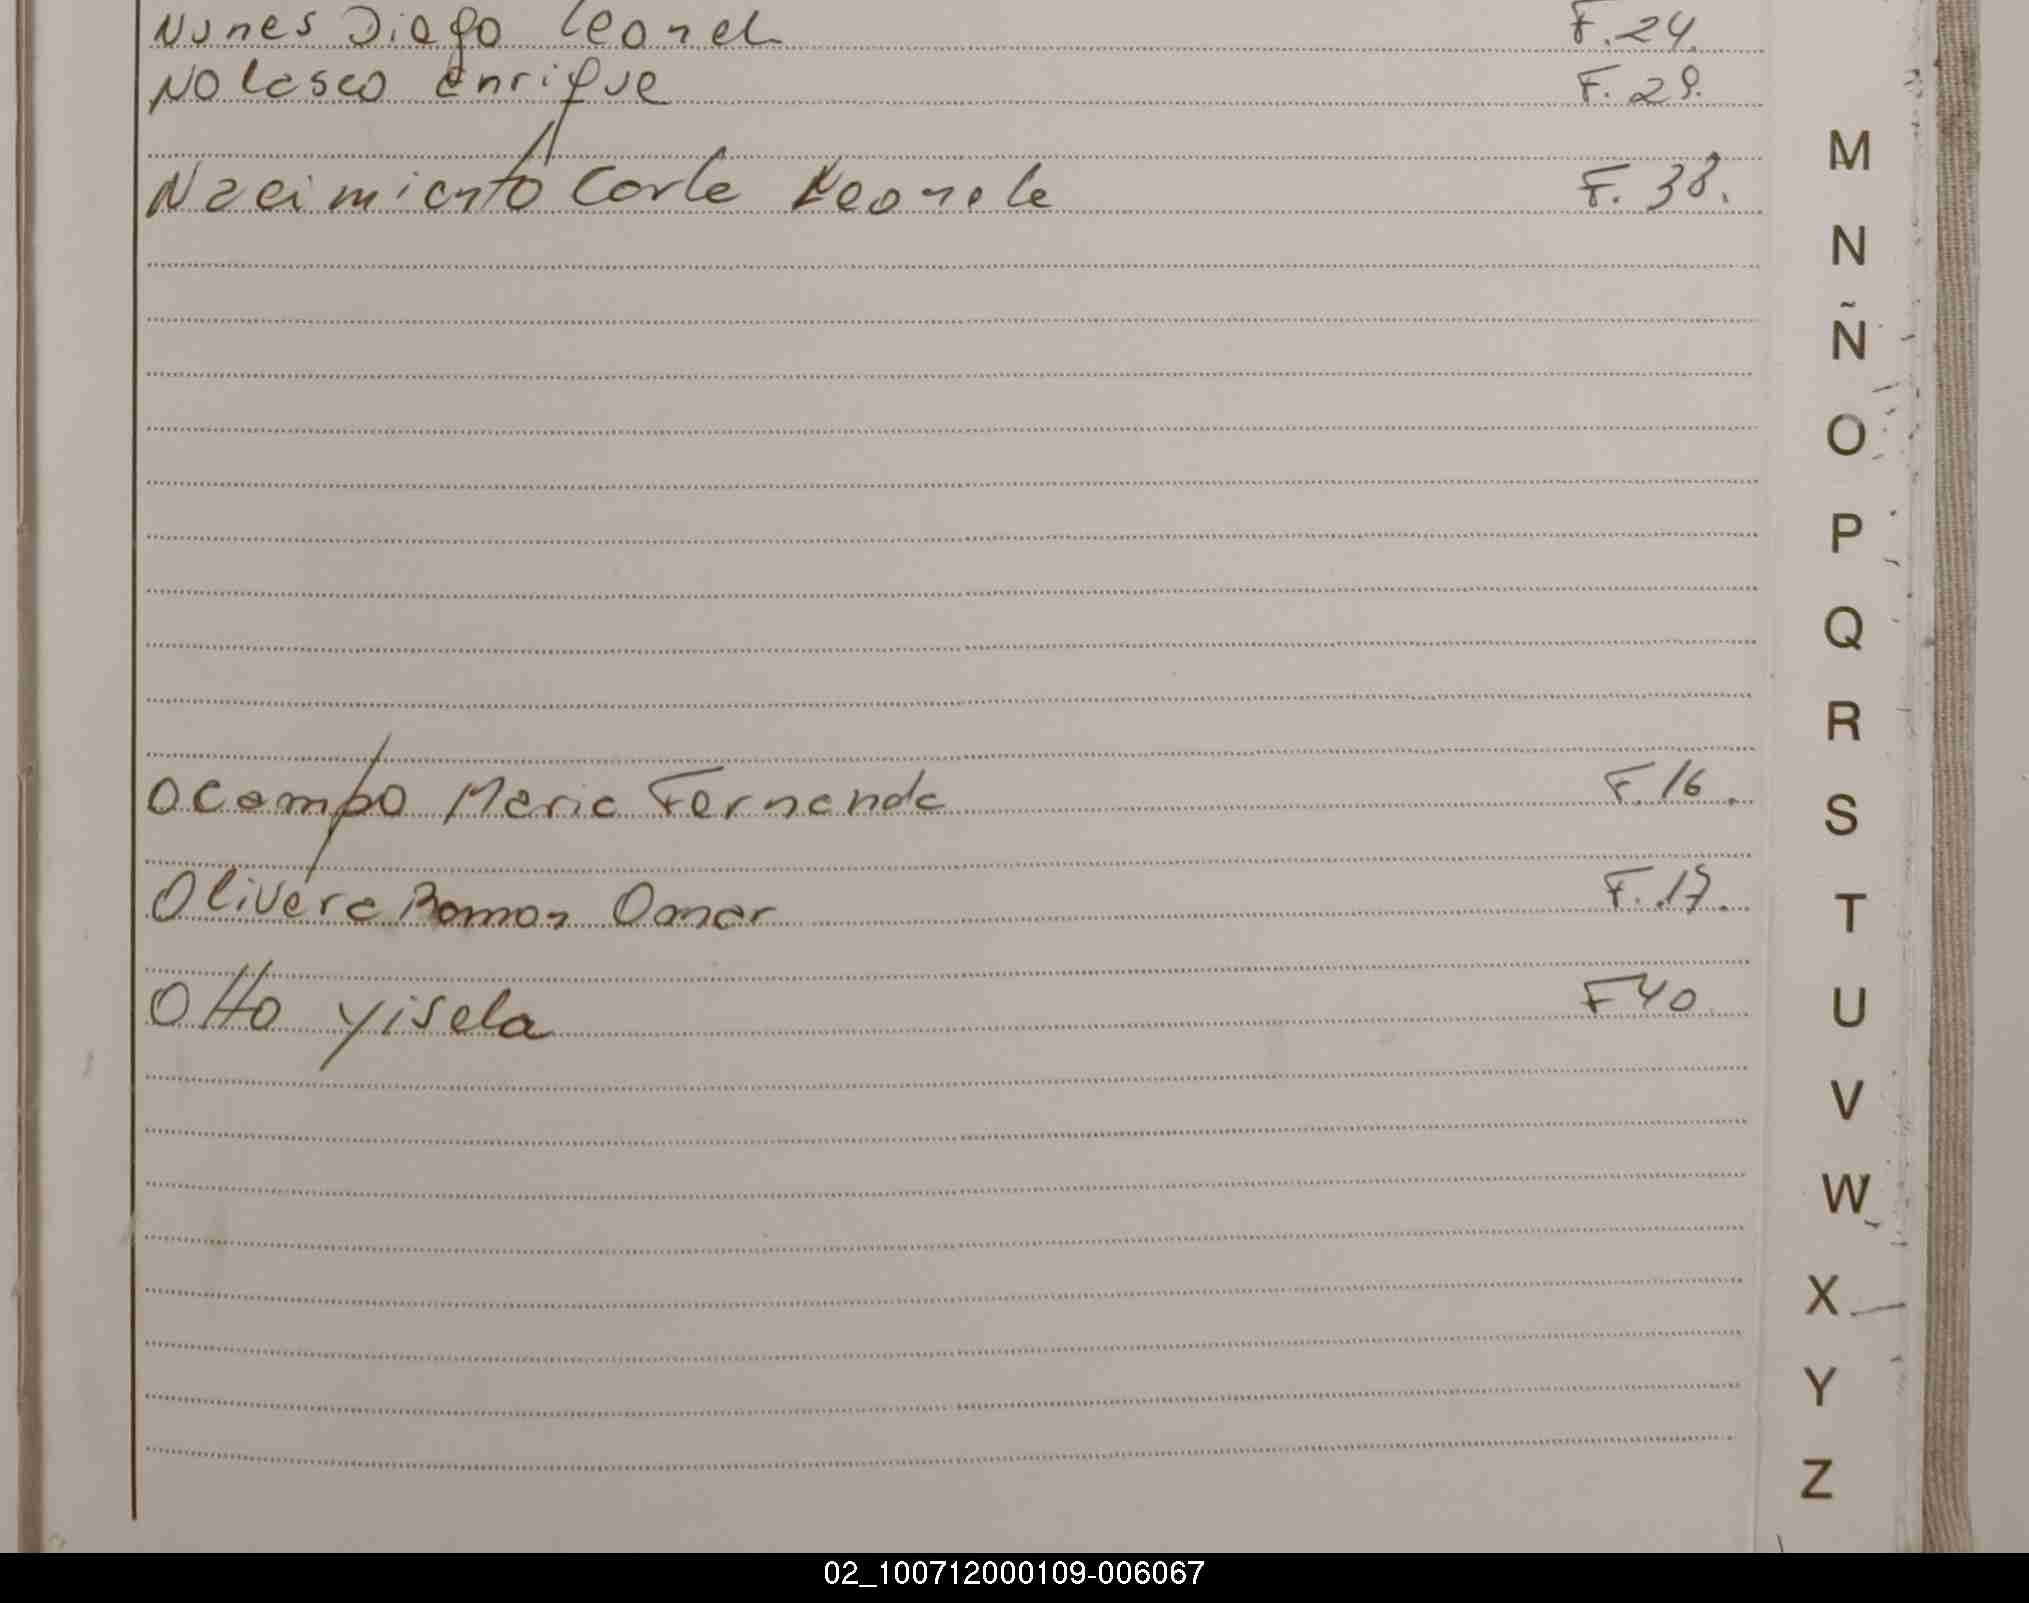 Nunes Diego Leonel F.24.
Nolasco Enrique F. 29.
Nacimiento Carla Leonela F. 38.
Ocampo Maria Fernanda F.16.
Olivera Ramon Omar F. 17.
Otto Yisela F40.
M
N
Ñ
O
P
Q
R
S
T
U
V
W
X
Y
Z
02_100712000109-006067